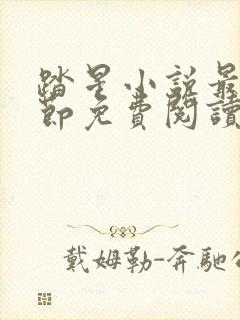 踏星小说最
節免費閱讀
戴姆勒-奔馳公